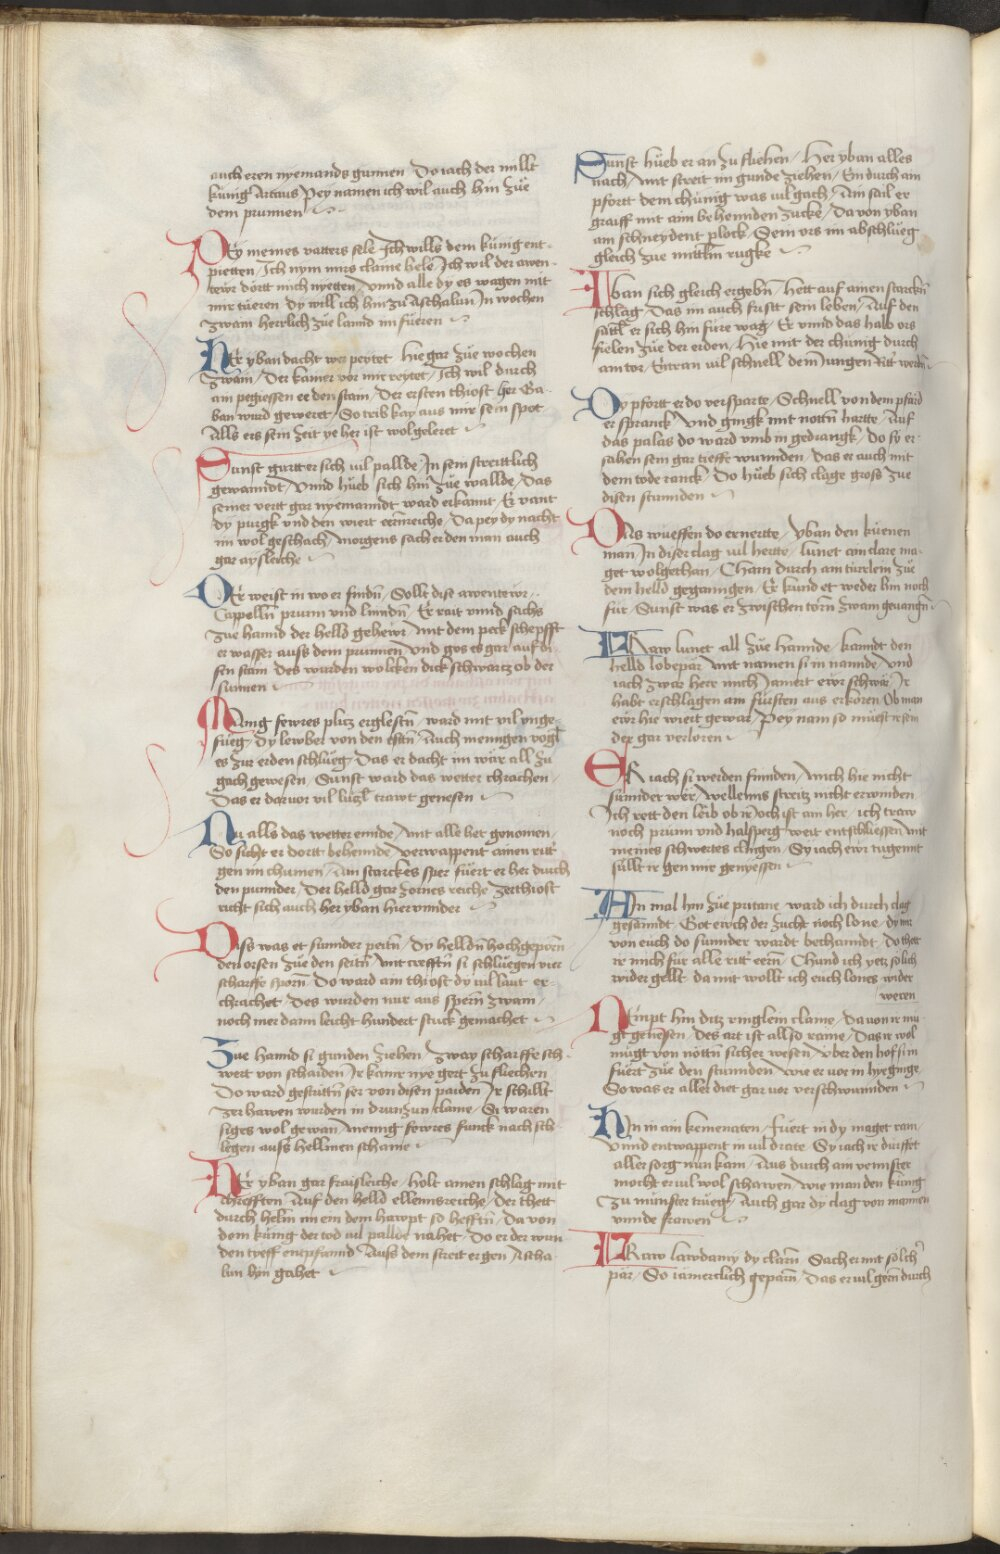 auch eren nyemands gunnen / Do iach der millt
künig Artaus / Pey namen ich wil auch hin züe
dem prunnen
PEy meines vatters sele / Ich wills dem künig ent-
pietten / Ich nym mirs claine hele / Ich wil der awen-
tewr dortt mich nyetten / Unnd alle dy es wagen mit
mir türren / Dy will ich hin zu Aschalun / In wochen
zwain herrlich züe lannd im füeren
HEr yban dacht wer peytet / hie gar züe wochen
zwain / Der kainer vor mir reytet / Ich wil durch
ain pegiessen ee den stain / Der ersten thiost her Ga-
ban ward geweret / So trib kay aus mir sein spot
Alls ers sein zeit ye her ist wol geleret
Sunst gurtt er sich vil pallde / In sein streittlich
gewanndt / Unnd hüeb sich hin züe wallde / Das
seiner vertt gar nyemanndt ward erkannt / Er vant
dy purgk und den wiert eernreiche / Da pey dy nacht
im wol geschach / Morgens sach er den man auch
gar aysleiche
DEr weist in wo er funden / Sollt dise awentewr /
Cappelln prunn und linnden / Er rait unnd sachs
züe hannd der helld gehewr / Mit dem peck schepfft
er wasser auss dem prunnen / Und gos es gar auf di-
sen stain / Des wurden wolcken dick schwartz ob der
sunnen
MAnig fewres plitz erglestn / ward mit vil unge-
füeg / Dy lewber von den estn / Auch mennigen vogl
es zur erden schlüeg / Das er dacht im wär all zu
gach gewesen / Sunst ward das wetter chrachen /
Das er darvor vil lützl trawt genesen
NU alls das wetter ennde / mit alle het genomen /
So sicht er dortt behennde / verwappent ainen ritt
gen im chumen / Ain starckes sper füert er her durch
den punnder / Der helld gar zornes reiche / Zer thiost
richt sich auch her yban hierunnder
DAss was et sunnder peitn / Dy helldn hochgeporn
den orsen züe den seitn / mit crefftn si schluegen vier
scharffe sporn / Do ward ain thiost dy vil laut er-
chrachet / Des wurden nur aus spern zwain /
noch mer dann leicht hundert stuck gemachet
Züe hannd si gunden ziehen / zway scharffe sch-
wert von schaiden / Ir kainr nye gert zu fliechen
Do ward gestrittn ser von disen paiden / Ir schillt
zerhawen wurden in drunzun claine / Si waren
siges wol gewan / mennig fewres funck nach sch-
legen auss hellmen schaine
HEr yban gar fraisleiche / Holt ainen schlag mit
chrefften / Auf den helld ellennsreiche / Der thett
durch helm im ein dem hawpt so hefftn / Da von
dem künig der tod vil pallde nahet / Do er der wun-
den treff enpfannd / Auss dem streit er gen Ascha-
lun hyn gahet
Sunst hüeb er an zu fliehen / Her yban alles
nach / mit streit im gunde ziehen / Ein durch ain
pfortt dem chünig was vil gach / Ain sail er
graiff mit aim behennden zucke / Da von yban
ain schneydent plock / Sein ors im abschlüeg
gleich züe mittln rugke
YBan sich gleich ergebn / Hett auf ainen starcken
schlag / Das im auch fristt sein leben / Auf den
sattl er sich hin füre wag / Er unnd das halb ors
fielen züe der erden / Hie mit der chünig durch
ain tor / Entran vil schnell dem Jungen Ritt werden
DY pfortt er do versparte / Schnell von dem pfärd
er spranck / Und gingk mit nottn hartte / Auf
das palas do ward umb in gedrangk / Do sy er-
sahen sein gar tieffe wunnden / Das er auch mit
dem tode ranck / Do hüeb sich clage gross züe
disen stunnden
DAs wueffen do ernertte / Yban den küenen
man / In diser clag vil hertte / lunet ain clare ma-
get wolgethan / Cham durch ain türlein züe
dem helld geganngen / Er kund et weder hin noch
für / Sunst was er zwischen torn zwain gevangn
FRaw lunet all züe hannde / kanndt den
helld lobepär / mit namen si in nannde / Und
iach zwar herr mich Jamert ewr schwär / Ir
habt erschlagen ain fürsten aus erkoren / Ob man
ewr hie wiert gewar / Pey nam so müest ir sein
der gar verloren
ER iach si werden finnden / mich hie nicht
sunnder wer / wellenns streitz nicht erwinden
Ich rett den leib ob ir Joch ist ain her / ich traw
noch prünn und halsperg weit entschliessen / mit
meines schwertes clingen / Sy iach ewr tugennt
süllt ir gen mir genyessen
AIn mal hin züe pritane / ward ich durch clag
gesanndt / Got ewch der zucht noch lone / dy mir
von euch do sunnder wardt bechanndt / Do thett
ir mich für alle ritt eern / Chund ich yetz solich
wider gellt / da mit wollt ich euch lones wider
weren
NEmpt hin ditz vinglein claine / Da von ir mü-
gt genesen / Des art ist allso raine / Das ir wol
mügt von nöttn sicher wesen / Uber den hof si in
fuert züe den stunnden / wie er vor in hyeginge /
So was er aller diet gar vor verschwunnden
HIn in ain kemenaten / fuert in dy maget rain /
Unnd entwappent in vil drate / Sy iach ir dürffet
aller sorg nun kain / Aus durch ain vennster
mocht er vil wol schawen / wie man den künig
zu münster trüeg / Auch gar dy clag von mannen
unnde frawen
FRaw lawdamy dy clarn / Sach er mit solch
pär / So iämerclich geparn / Das er vil gern durch